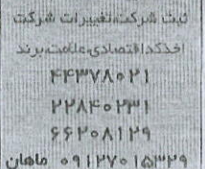 ثبت شرکت،تغییرات شرکت
اخذکداقتصادی،علامت،برند
۴۴۳۷۸۰۲۱
۲۲۸۴۰۲۳۱
۶۶۲۰۸۱۲۹
۰۹۱۲۷۰۱۵۳۲۹ ماهان